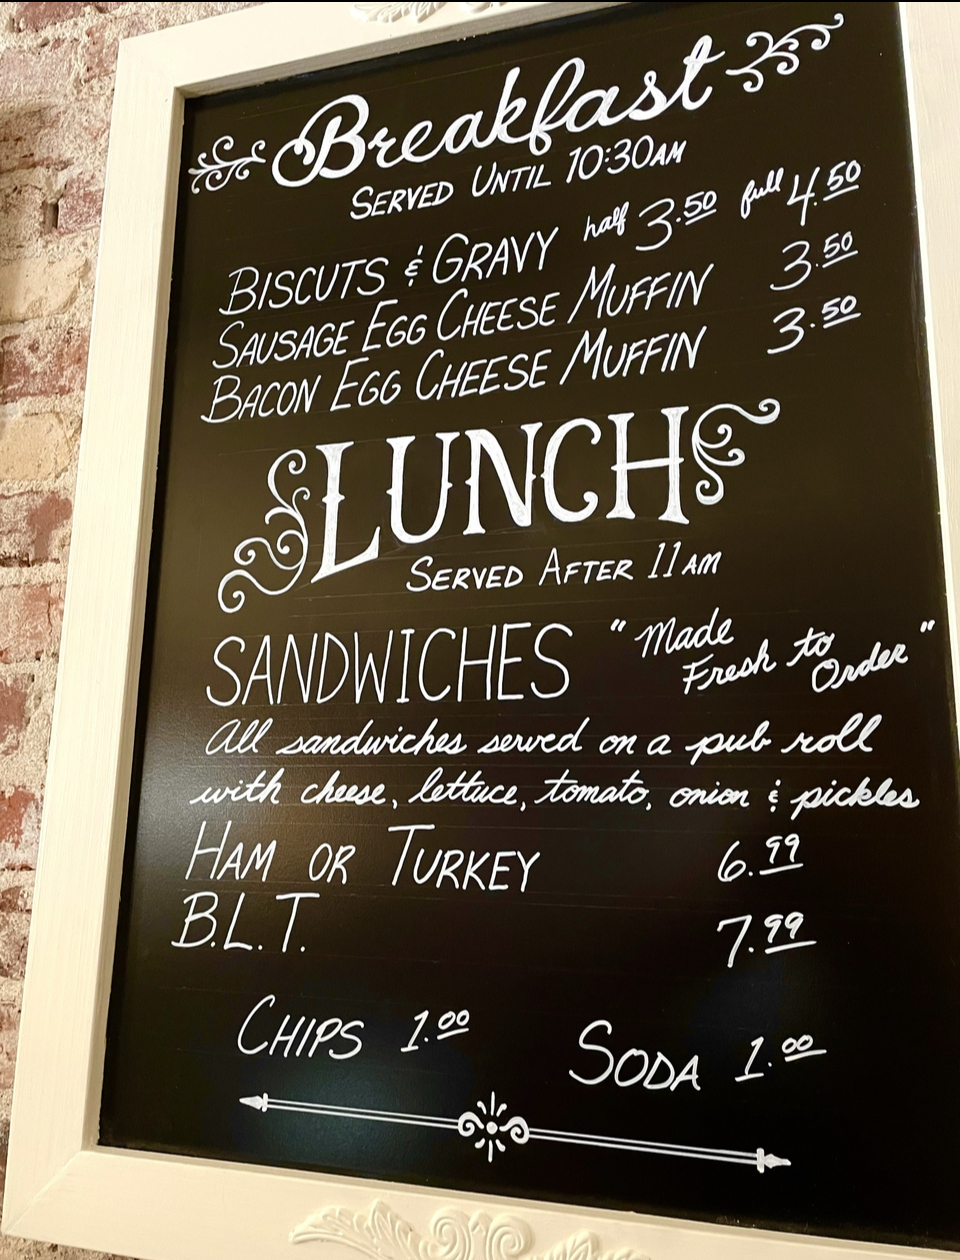 Breakfast
SERVED UNTIL 10:30AM
BISCUTS & GRAVY half 3.50 full 4.50
SAUSAGE EGG CHEESE MUFFIN 3.50
BACON EGG CHEESE MUFFIN 3.50
LUNCH
SERVED AFTER 11AM
SANDWICHES "Made Fresh to Order"
All sandwiches served on a pub roll
with cheese, lettuce, tomato, onion & pickles
HAM OR TURKEY 6.99
B.L.T. 7.99
CHIPS 1.00 SODA 1.00